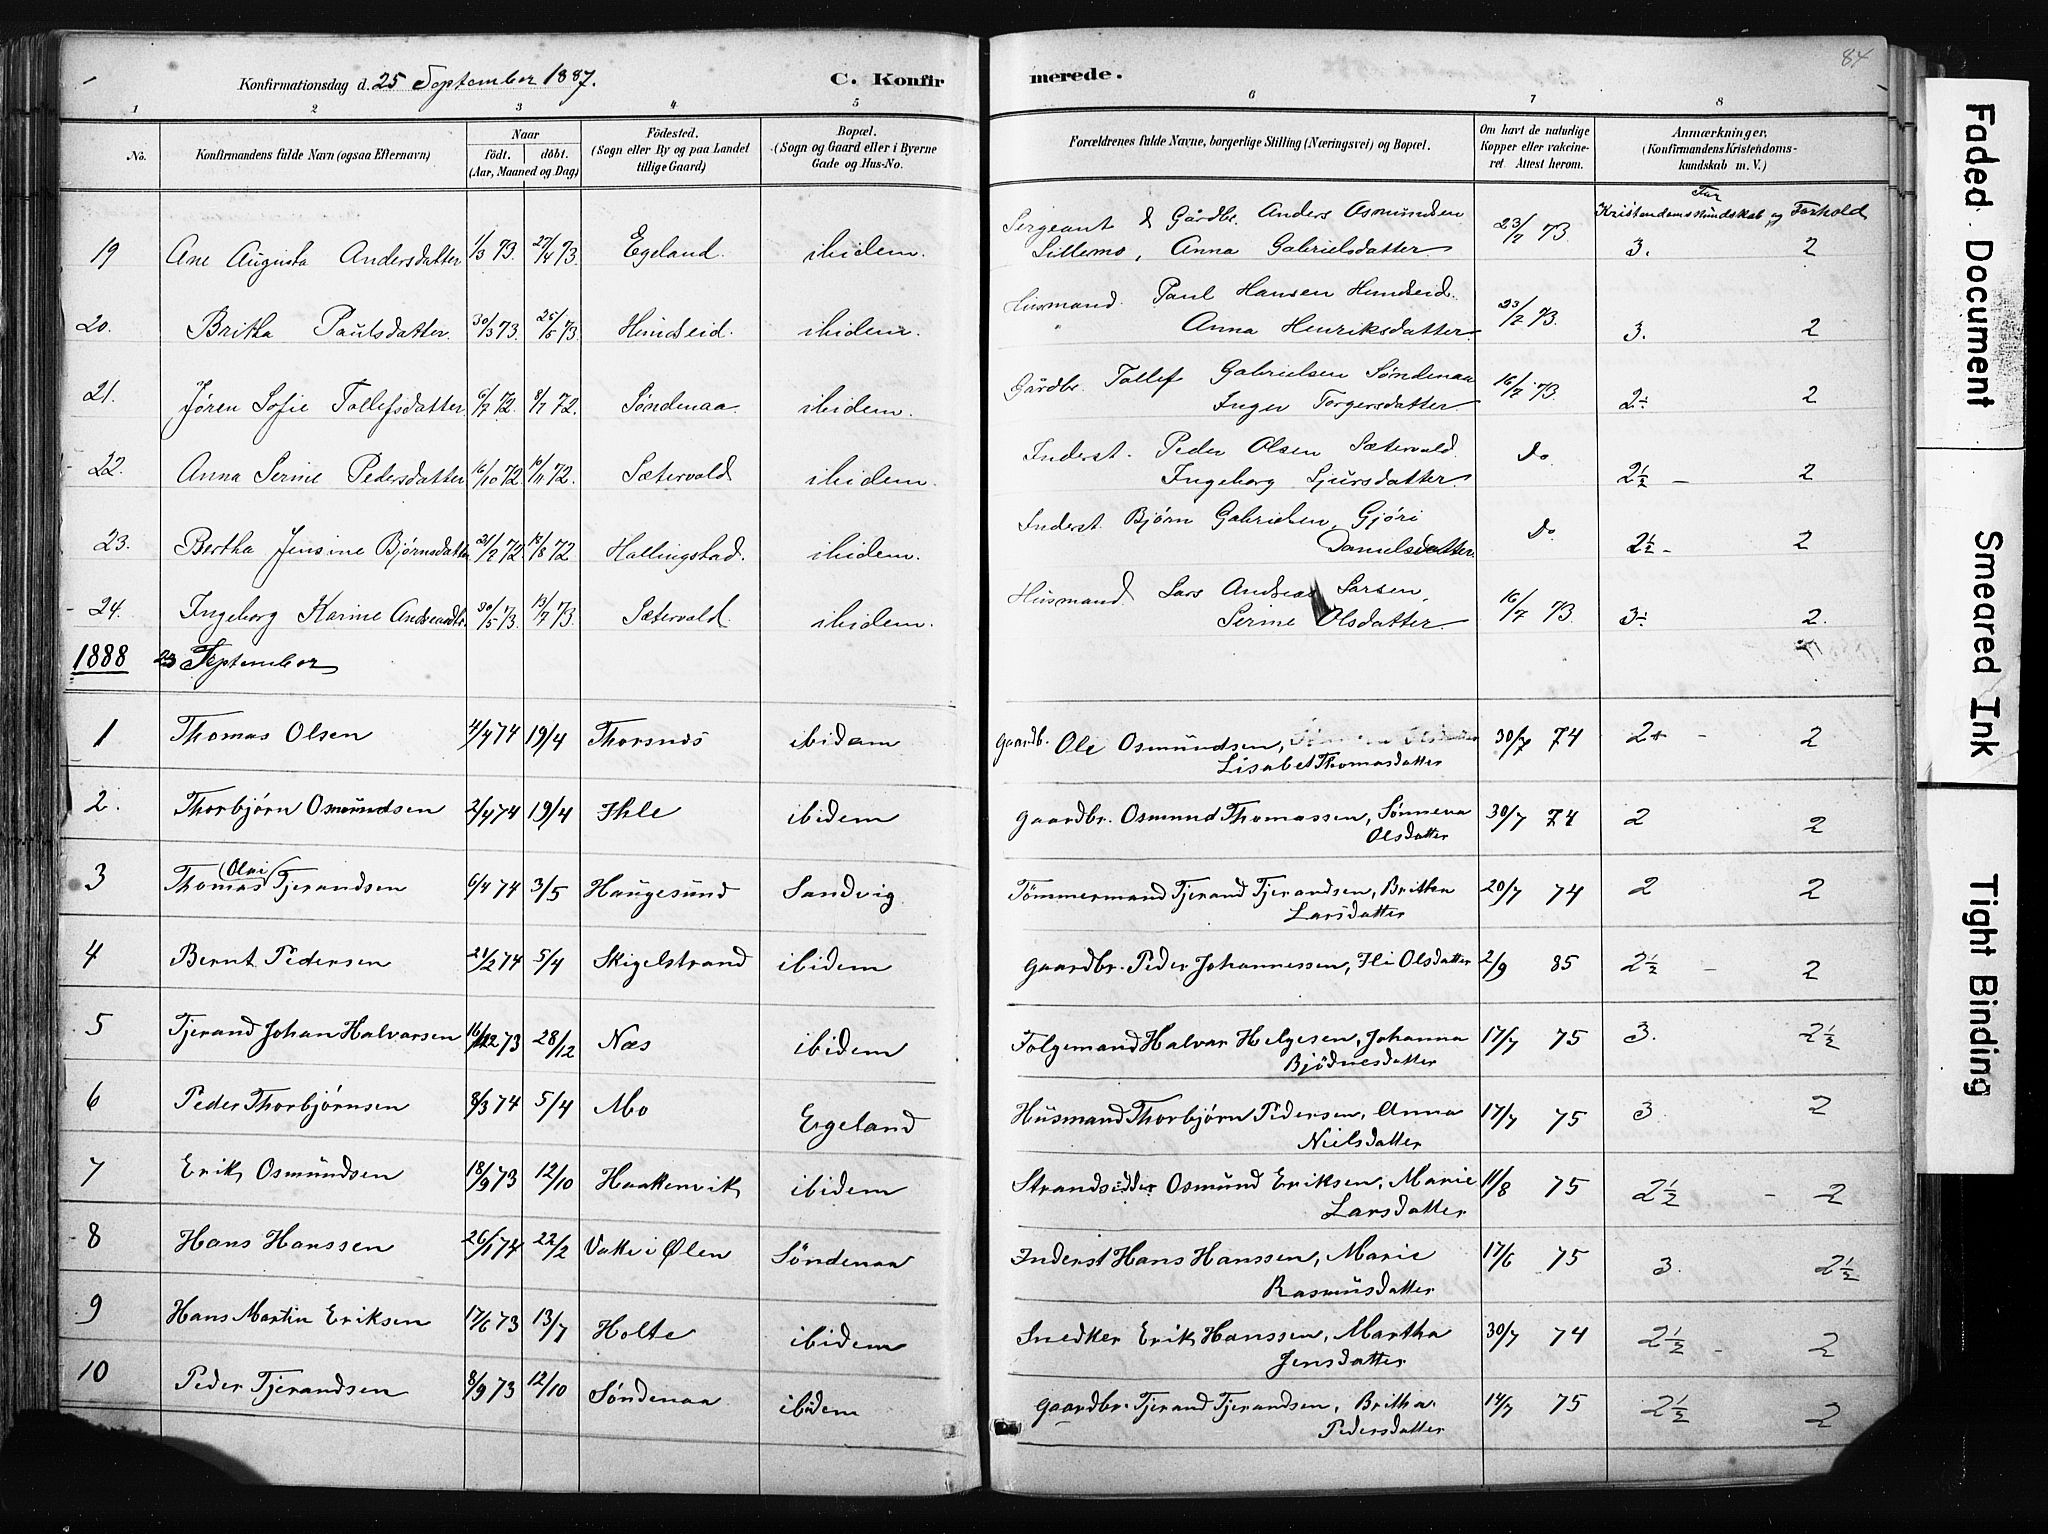 84
Konfirmationsdag d. 25 September 1887. C. Konfirmerede.
1 2 3 4 5 6 7 8
No. Konfirmandens fulde Navn (ogsaa Efternavn) Naar födt. döbt. (Aar, Maaned og Dag) Födested. (Sogn eller By og paa Landet tillige Gaard) Bopæl. (Sogn og Gaard eller i Byerne Gade og Hus-No. Forældrenes fulde Navne, borgerlige Stilling (Næringsvei) og Bopæl. Om havt de naturlige Kopper eller vakcineret Attest herom. Anmærkninger, (Konfirmandens Kristendomskundskab m. V.)
For Kristendomskundskab og Forhold
19 Ane Augusta Andersdatter 1/3 73. 27/4 73. Egeland. ibidem. Sergeant & Gårdbr. Anders Osmundsen 23/7 73
Lillemo, Anna Gabrielsdatter 3. 2
20. Britha Paulsdatter 30/3 73. 25/5 73 Hundseid. ibidem. Husmand. Paul Hansen Hundseid. 23/7 73.
" Anna Henriksdatter 3. 2
21. Jóren Sofie Tollefsdatter 6/7 72. 8/7 72. Söndenaa. ibidem. Gårdbr. Tollef Gabrielsen Söndenaa 16/7 73.
Inger Torgersdatter 2÷ 2
22. Anna Serine Pedersdatter 16/10 72. 10/11 72. Sætervold ibidem. Inderst. Peder Olsen Sætervold. Do.
Ingeborg Sjursdatter 2½ – 2
23. Bertha Jensine Björnsdatter 21/7 72. 18/8 72 Hallingstad. ibidem. Inderst. Björn Gabrielsen, Gjöri Do.
Danielsdatter. 2½ - 2
24. Ingeborg Karine Andreasdtr. 30/5 73. 13/7 73. Sætervold. ibidem. Husmand. Lars Andreas Larsen, 16/7 73.
Serine Olsdatter. 3÷ 2.
1888 23 September
1 Thomas Olsen 4/4 74 19/4 Thorsnes ibidem Gaardb. Ole Osmundsen, 30/7 74 2+ - 2
Lisabet Thomasdatter
2. Thorbjörn Osmundsen 2/4 74 19/4 Ihle ibidem Gaardbr. Osmund Thomassen, Sönneva 30/7 74 2 2
Olsdatter
3 Thomas (Olai) Tjerandsen 6/4 74 3/5 Haugesund Sandvig Tömmermand Tjerand Tjerandsen, Britha 20/7 74 2 2
Larsdatter
4 Bernt Pedersen 21/2 74 5/4 Skigelstrand ibidem Gaardbr. Peder Johannessen, Eli Olsdatter 2/9 85 2½ - 2
5 Tjerand Johan Halvarsen 16/12 73 28/12 Næs ibidem Folgemand Halvar Helgesen, Johanna 17/7 75 3. 2½
Bjödnesdatter
6 Peder Thorbjörnsen 8/3 74 5/4 Mo Egeland Husmand Thorbjörn Pedersen, Anna 17/7 75 3. 2
Nielsdatter
7 Erik Osmundsen 18/9 73 12/10 Haakenvik ibidem Strandsidder Osmund Eriksen, Marie 11/8 75 2½ - 2
Larsdatter
8 Hans Hanssen 26/1 74 22/2 Vake i Ølen Söndenaa Inderst Hans Hanssen, Marie 17/6 75 3. 2½
Rasmusdatter
9 Hans Martin Eriksen 17/6 73 13/7 Holte ibidem Snedker Erik Hanssen, Martha 30/7 74 2½ - 2
Jensdatter
10 Peder Tjerandsen 8/9 73 12/10 Söndenaa ibidem Gaardbr. Tjerand Tjerandsen, Britha 14/7 75 2½ 2
Pedersdatter
Faded Document
Smeared Ink
Tight Binding